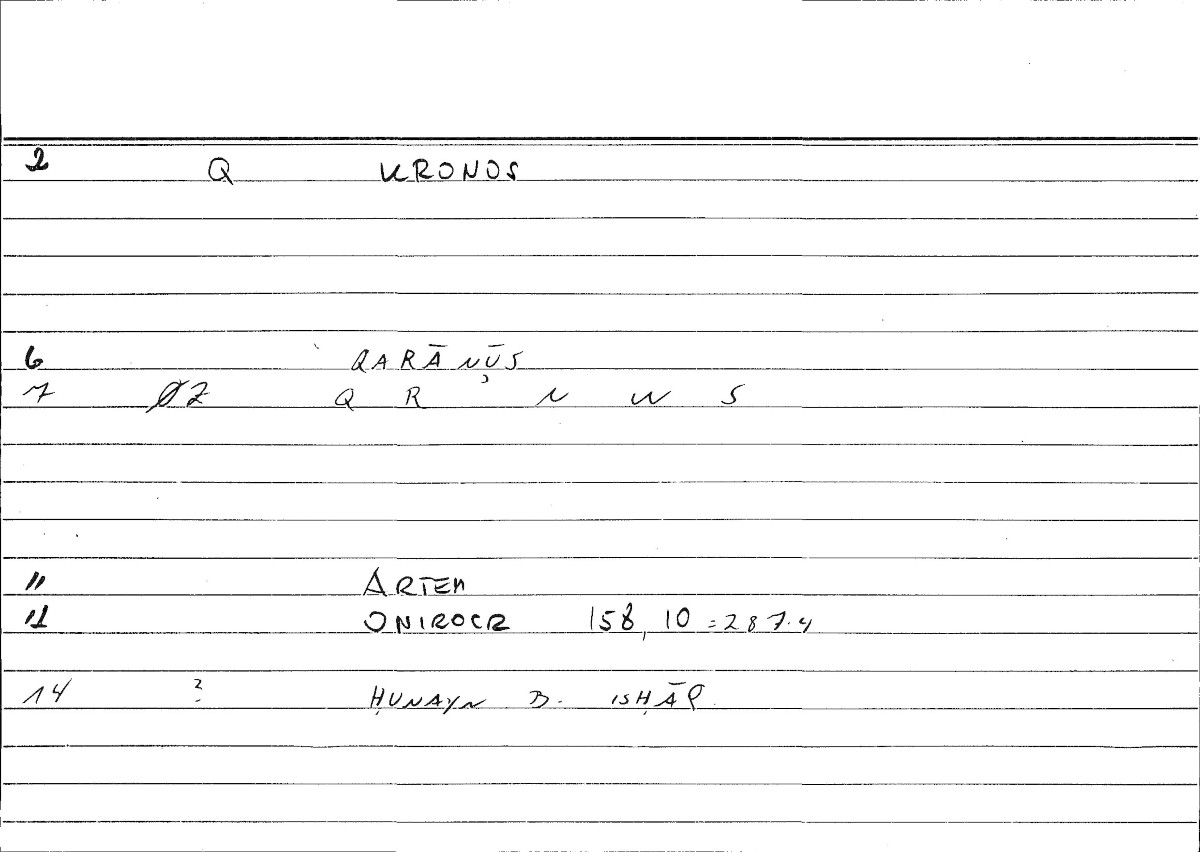 2 Q KRONOS
6 QARĀNŪS
7 Ø2 Q R ʾ N W S
11 ARTEM
12 ONIROCR 158, 10 = 287.4
14 ? ḤUNAYN B. ISḤĀQ